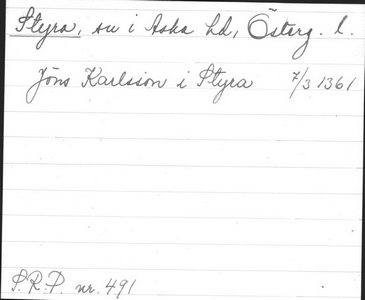 Styra, sn i Aska hd, Österg. l.
Jöns Karlsson i Styra 7/3 1361
S.R.P. nr. 491